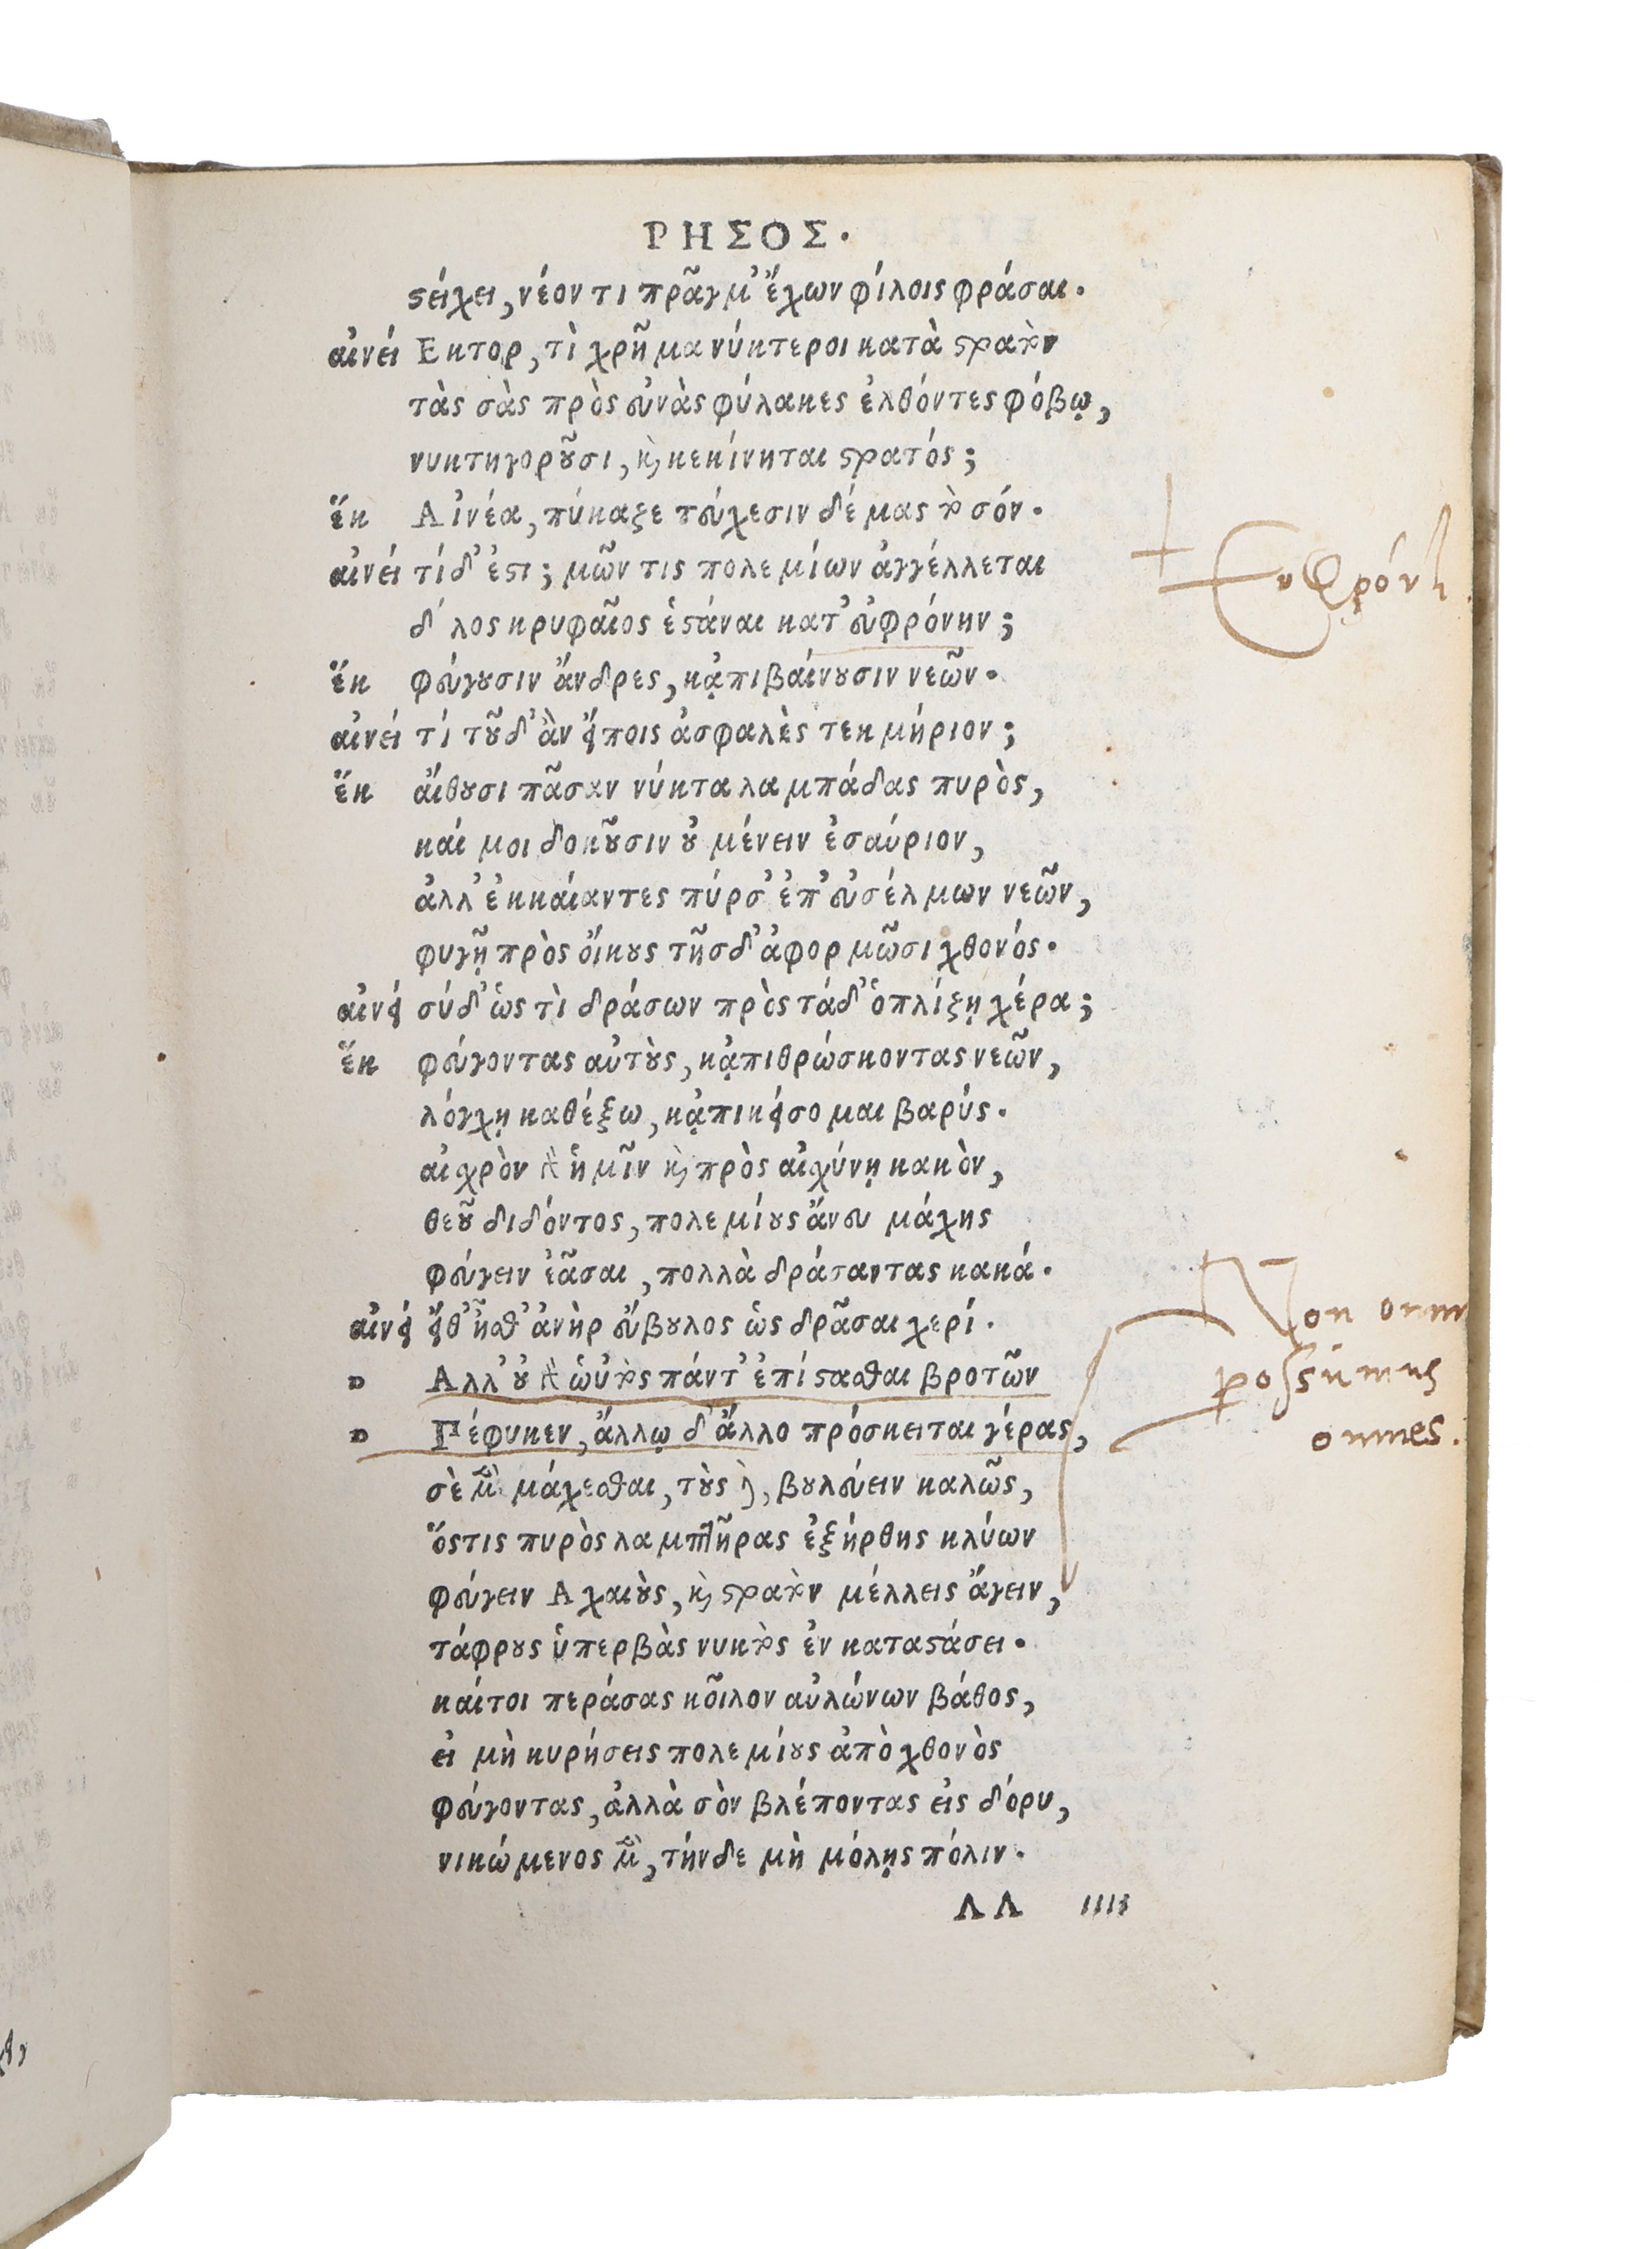 ΡΗΣΟΣ.
ϛείχει, νέον τι πρᾶγμ᾽ ἔχων φίλοις φράσαι.
αἰνεί Εκτορ, τὶ χρῆμα νύκτεροι κατὰ ϛρατὸν
τὰς σὰς πρὸς εὐνὰς φύλακες ἐλθόντες φόβῳ,
νυκτηγοροῦσι, ϗ κεκίνηται ϛρατός;
ἕκ Αἰνέα, πύκαζε τεύχεσιν δέμας τὸ σόν.
αἰνεί τί δ᾽ ἐϛι; μῶν τις πολεμίων ἀγγέλλεται
δ λος κρυφαῖος ἑϛάναι κατ᾽ εὐφρόνην;
Ευφρόνη.
ἕκ φεύγουσιν ἄνδρες, κᾀπιβαίνουσιν νεῶν.
αἰνεί τί τοῦδ᾽ ἂν εἴποις ἀσφαλὲς τεκμήριον;
ἕκ αἴθουσι πᾶσαν νύκτα λαμπάδας πυρὸς,
καί μοι δοκοῦσιν οὐ μένειν ἐσαύριον,
ἀλλ᾽ ἐκκαίαντες πύρσ᾽ ἐπ᾽ εὐσέλμων νεῶν,
φυγῇ πρὸς οἴκους τῆσδ᾽ ἀφορμῶσι χθονός.
αἰνεί σύ δ᾽ ὡς τὶ δράσων πρὸς τάδ᾽ ὁπλίζῃ χέρα;
ἕκ φεύγοντας αὐτοὺς, κᾀπιθρώσκοντας νεῶν,
λόγχῃ καθέξω, κᾀπικείσομαι βαρύς.
αἰσχρὸν γὰρ ἡμῖν ϗ πρὸς αἰσχύνῃ κακὸν,
θεοῦ διδόντος, πολεμίους ἄνευ μάχης
φεύγειν ἐᾶσαι, πολλὰ δράσαντας κακά.
αἰνεί εἴθ᾽ ἦσθ᾽ ἀνὴρ εὔβουλος ὡς δρᾶσαι χερί.
" Αλλ᾽ οὐ γὰρ ὡυτὸς πάντ᾽ ἐπίϛασθαι βροτῶν
" Πέφυκεν, ἄλλῳ δ᾽ ἄλλο πρόσκειται γέρας,
Non omnia
possumus
omnes.
σὲ μὲν μάχεσθαι, τοὺς δὲ, βουλεύειν καλῶς,
ὅϛτις πυρὸς λαμπτῆρας ἐξήρθης κλύων
φεύγειν Αχαιοὺς, ϗ ϛρατὸν μέλλεις ἄγειν,
τάφρους ὑπερβὰς νυκτὸς ἐν καταϛάσει.
καίτοι περάσας κοῖλον αὐλώνων βάθος,
εἰ μὴ κυρήσεις πολεμίους ἀπὸ χθονὸς
φεύγοντας, ἀλλὰ σὸν βλέποντας εἰς δόρυ,
νικώμενος μὲν, τήνδε μὴ μόλῃς πόλιν.
ΛΛ iiii